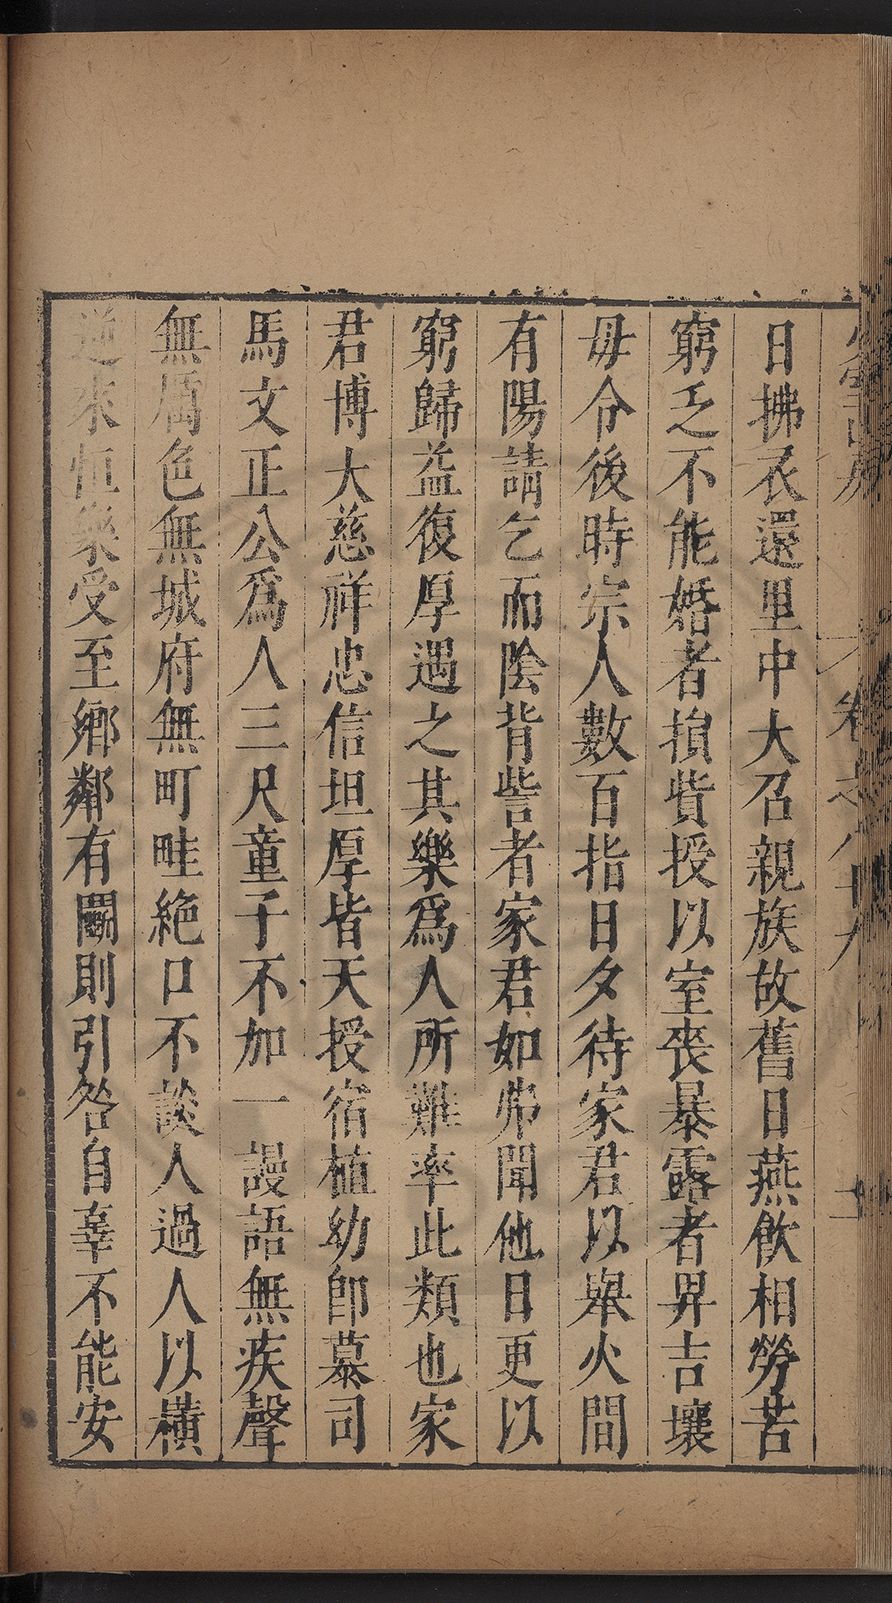 卷之八十九
日拂衣還里中大召親族故舊日燕飲相勞苦
窮乏不能婚者損貲授以室喪暴露者畀吉壤
毋令後時宗人數百指日夕待家君以舉火間
有陽請乞而陰背訾者家君如弗聞他日更以
窮歸益復厚遇之其樂爲人所難率此類也家
君博大慈祥忠信坦厚皆天授宿植幼卽慕司
馬文正公爲人三尺童子不加一謾語無疾聲
無厲色無城府無町畦絶口不談人過人以橫
逆來恒樂受至鄉鄰有鬬則引咎自辜不能安